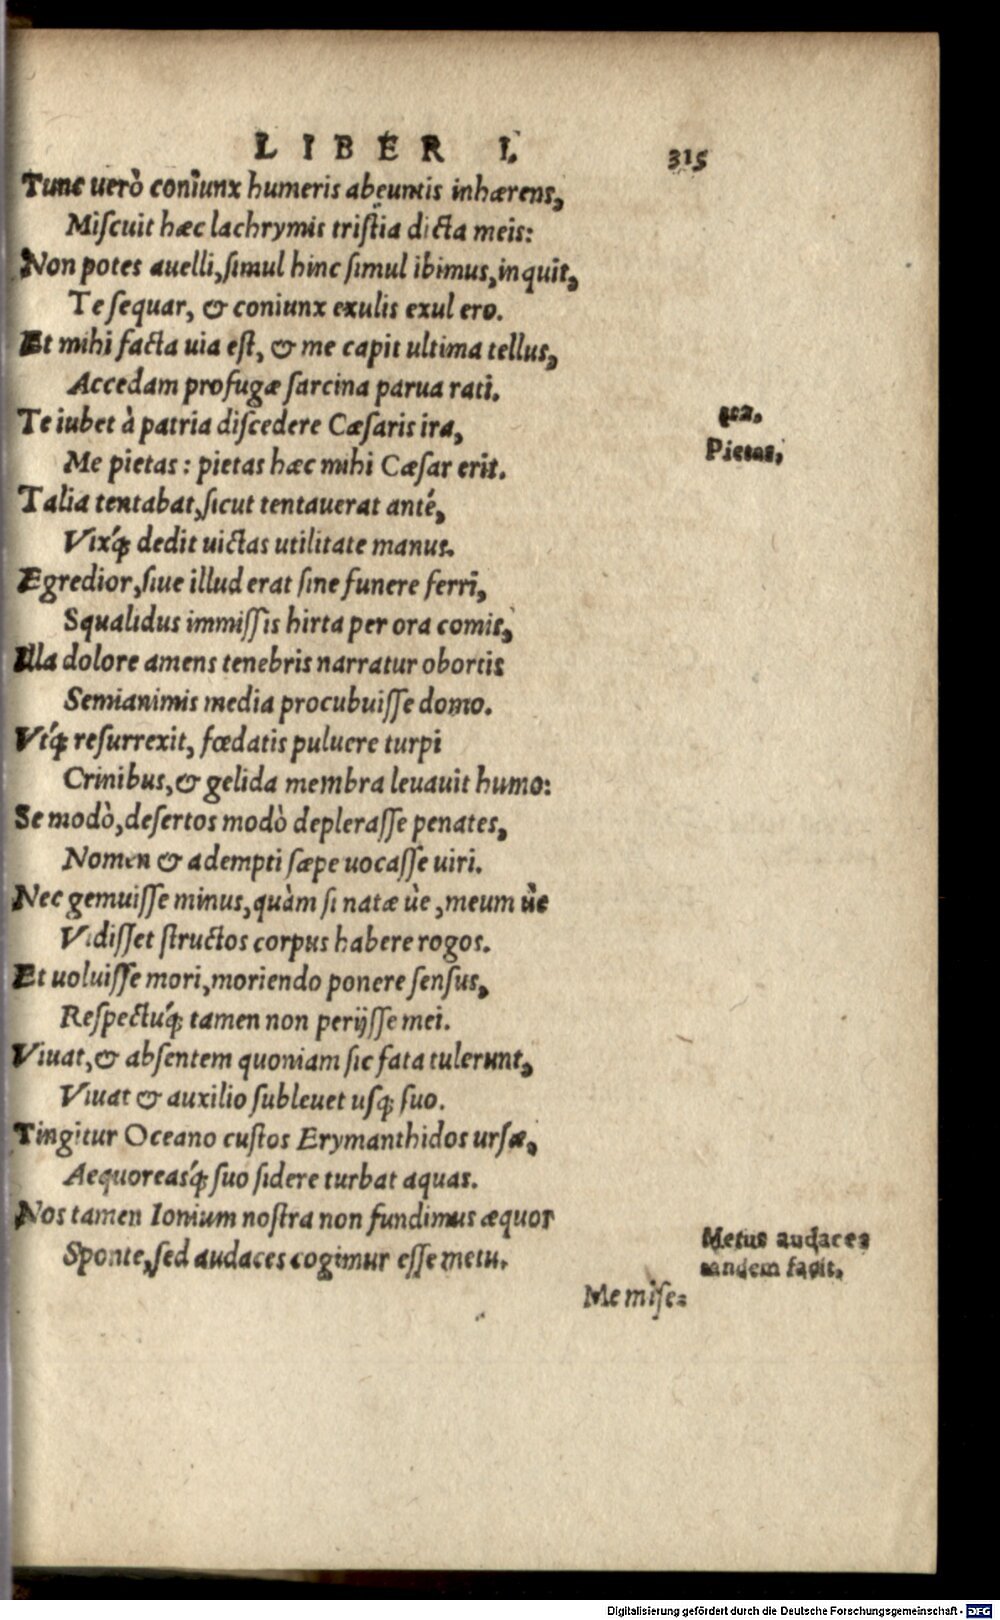 LIBER I. 315
Tunc uerò coniunx humeris abeuntis inhærens,
Miſcuit hæc lachrymis triſtia dicta meis:
Non potes auelli, ſimul hinc ſimul ibimus, inquit,
Te ſequar, & coniunx exulis exul ero.
Et mihi facta uia eſt, & me capit ultima tellus,
Accedam profugæ ſarcina parua rati.
Te iubet à patria diſcedere Cæſaris ira,
Me pietas: pietas hæc mihi Cæſar erit.
Pietas,
Talia tentabat, ſicut tentauerat anté,
Vixq́; dedit uictas utilitate manus.
Egredior, ſiue illud erat ſine funere ferri,
Squalidus immiſſis hirta per ora comis,
Illa dolore amens tenebris narratur obortis
Semianimis media procubuiſſe domo.
Vtq́; reſurrexit, fœdatis puluere turpi
Crinibus, & gelida membra leuauit humo:
Se modò, deſertos modò depleraſſe penates,
Nomen & adempti ſæpe uocaſſe uiri.
Nec gemuiſſe minus, quàm ſi natæ ùe, meum ùe
Vidiſſet ſtructos corpus habere rogos.
Et uoluiſſe mori, moriendo ponere ſenſus,
Reſpectuq́; tamen non perijſſe mei.
Viuat, & abſentem quoniam ſic fata tulerunt,
Viuat & auxilio ſubleuet uſq; ſuo.
Tingitur Oceano cuſtos Erymanthidos urſæ,
Aequoreasq́; ſuo ſidere turbat aquas.
Nos tamen Ionium noſtra non fundimus æquor
Sponte, ſed audaces cogimur eſſe metu.
Metus audaces
tandem facit.
Me miſe=
Digitalisierung gefördert durch die Deutsche Forschungsgemeinschaft - DFG